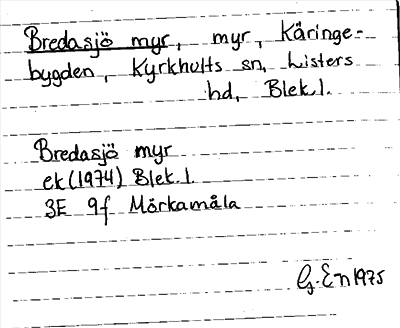 Bredasjö myr, myr, Käringe-
bygden, Kyrkhults sn, Listers
hd, Blek.l.
Bredasjö myr
ek (1974) Blek.l.
3E 9f Mörkamåla
G. En 1975